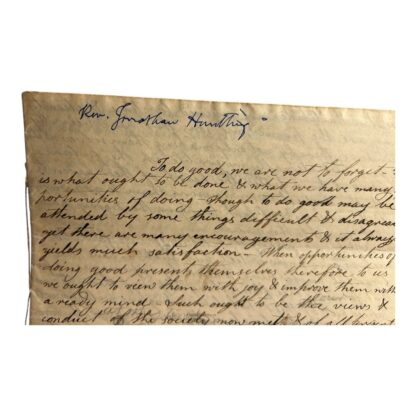 Rev. Jonathan Hunting
To do good, we are not to forget -
is what ought to be done & what we have many
portunities of doing though to do good may be
attended by some things difficult & disagrea
yet there are many encouragements & it always
yields much satisfaction - When opportunities of
doing good presents themselves therefore to us
we ought to view them with joy & improve them with
a ready mind Such ought to be the views &
conduct of the society now met & of all